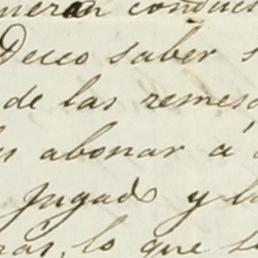 meran conduc
Deceo saber s
de las remes
abonar á
Jugado y l
rás, lo que s